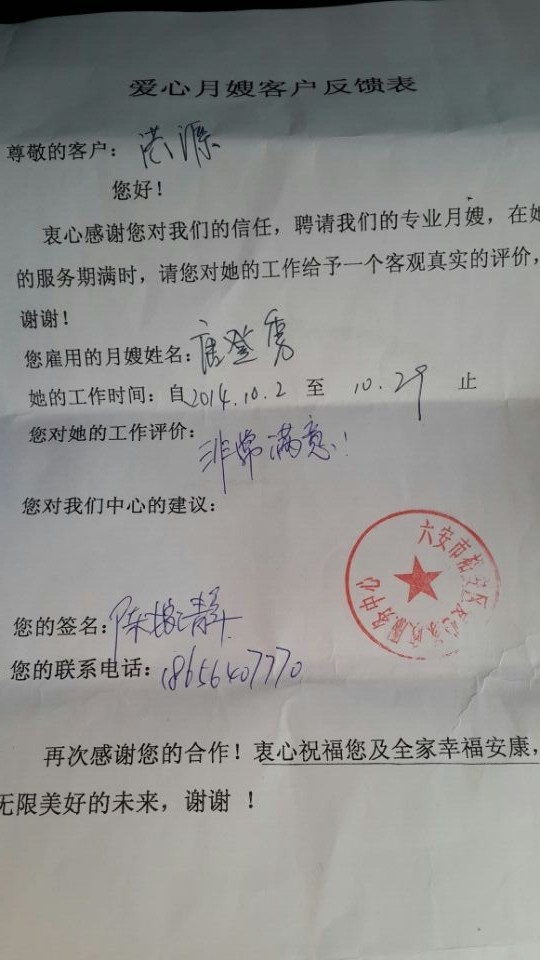 爱心月嫂客户反馈表
尊敬的客户：
您好！
衷心感谢您对我们的信任，聘请我们的专业月嫂，在她
的服务期满时，请您对她的工作给予一个客观真实的评价，
谢谢！
您雇用的月嫂姓名：唐登秀
她的工作时间：自2014.10.2 至 10.29 止
您对她的工作评价：非常满意！
您对我们中心的建议：
六安市裕安区爱心家政服务中心
您的签名：陈婷静
您的联系电话：18656407770
再次感谢您的合作！衷心祝福您及全家幸福安康，
无限美好的未来，谢谢 ！